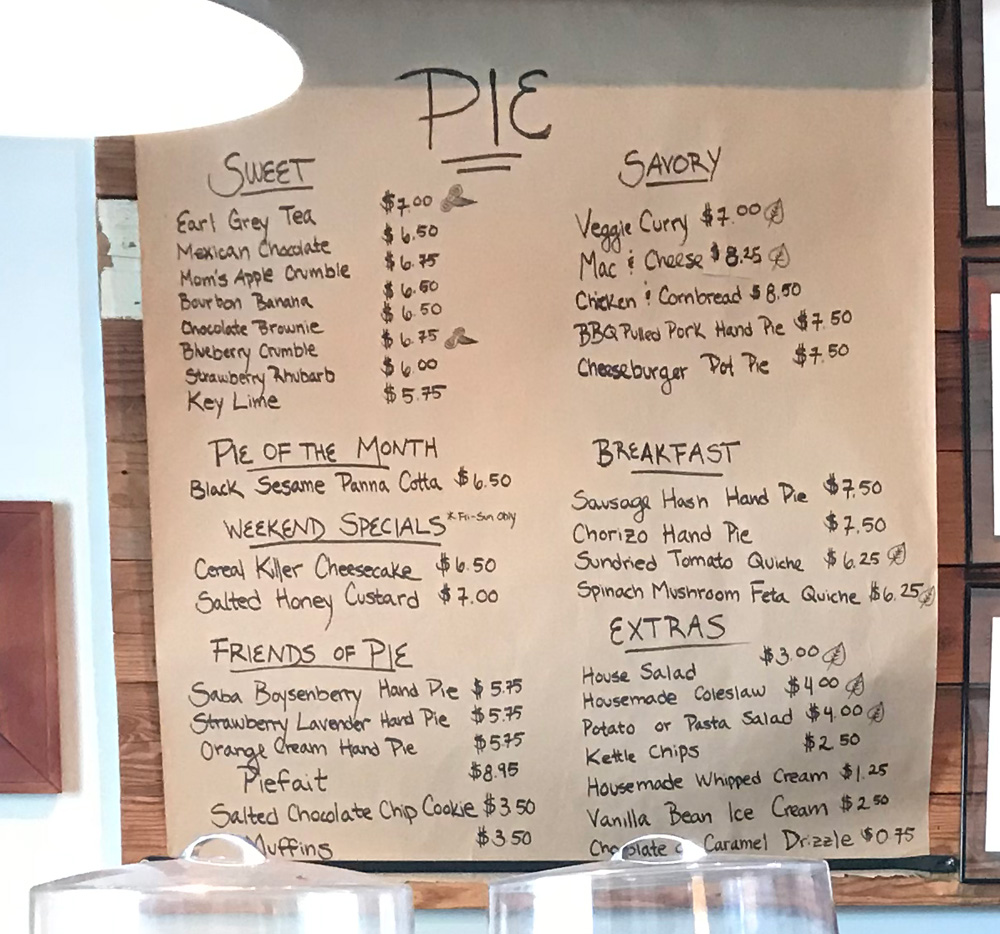 PIE
SWEET
Earl Grey Tea $7.00
Mexican Chocolate $6.50
Mom's Apple Crumble $6.75
Bourbon Banana $6.50
Chocolate Brownie $6.50
Blueberry Crumble $6.75
Strawberry Rhubarb $6.00
Key Lime $5.75
PIE OF THE MONTH
Black Sesame Panna Cotta $6.50
WEEKEND SPECIALS *Fri-Sun Only
Cereal Killer Cheesecake $6.50
Salted Honey Custard $7.00
FRIENDS OF PIE
Saba Boysenberry Hand Pie $5.75
Strawberry Lavender Hand Pie $5.75
Orange Cream Hand Pie $5.75
Piefait $8.95
Salted Chocolate Chip Cookie $3.50
Muffins $3.50
SAVORY
Veggie Curry $7.00
Mac & Cheese $8.25
Chicken & Cornbread $8.50
BBQ Pulled Pork Hand Pie $7.50
Cheeseburger Pot Pie $7.50
BREAKFAST
Sausage Hash Hand Pie $7.50
Chorizo Hand Pie $7.50
Sundried Tomato Quiche $6.25
Spinach Mushroom Feta Quiche $6.25
EXTRAS
House Salad $3.00
Housemade Coleslaw $4.00
Potato or Pasta Salad $4.00
Kettle Chips $2.50
Housemade Whipped Cream $1.25
Vanilla Bean Ice Cream $2.50
Chocolate or Caramel Drizzle $0.75